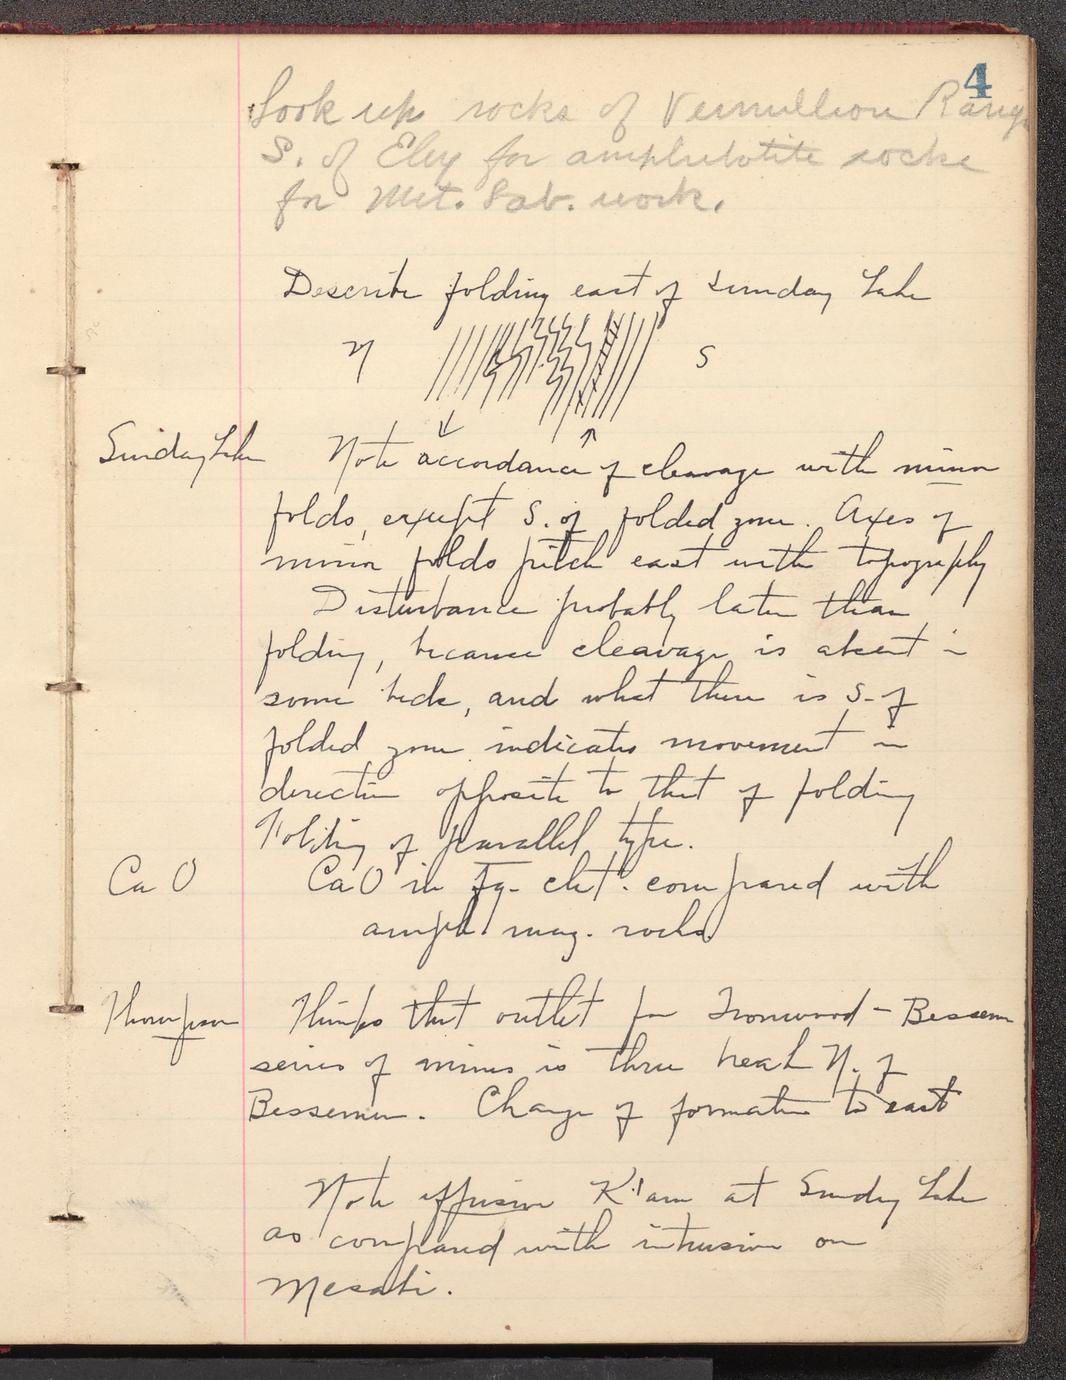 4
Look up rocks of Vermillion Rang
S. of Ely for amphibolite rocks
for Met. Lab. work.
Describe folding east of Sunday Lake
N S
Sunday Lake
Note accordance of cleavage with minor
folds, except S. of folded zone. Axes of
minor folds pitch east with topography
Disturbance probably later than
folding, because cleavage is absent in
some beds, and what there is S. of
folded zone indicates movement in
direction opposite to that of folding
Folding of parallel type.
CaO
CaO in compared with
amph. mag. rocks
Thompson
Thinks that outlet for Ironwood - Bessemer
series of mines is thru break N. of
Bessemer. Change of formation to east
Note effusive K'l'am at Sunday Lake
as compared with intrusion on
Mesabi.